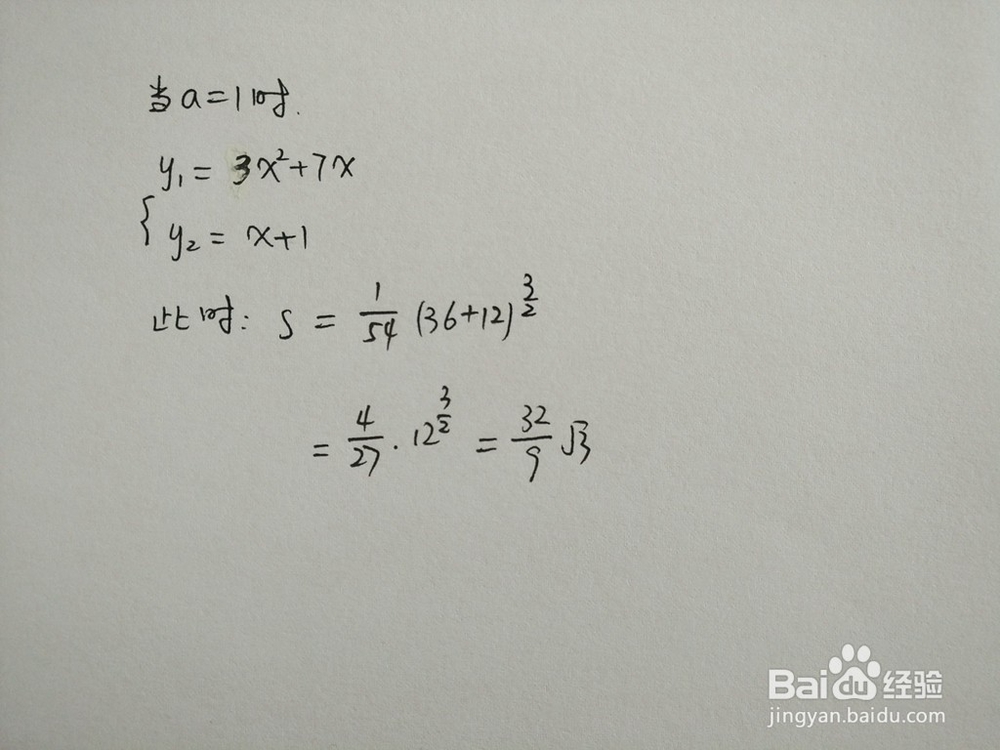 当a=1时.
y₁ = 3x²+7x
{ y₂ = x+1
此时: S = 1/54 (36+12)^(3/2)
= 4/27 · 12^(3/2) = 32/9 √3
Baidu经验
jingyan.baidu.com